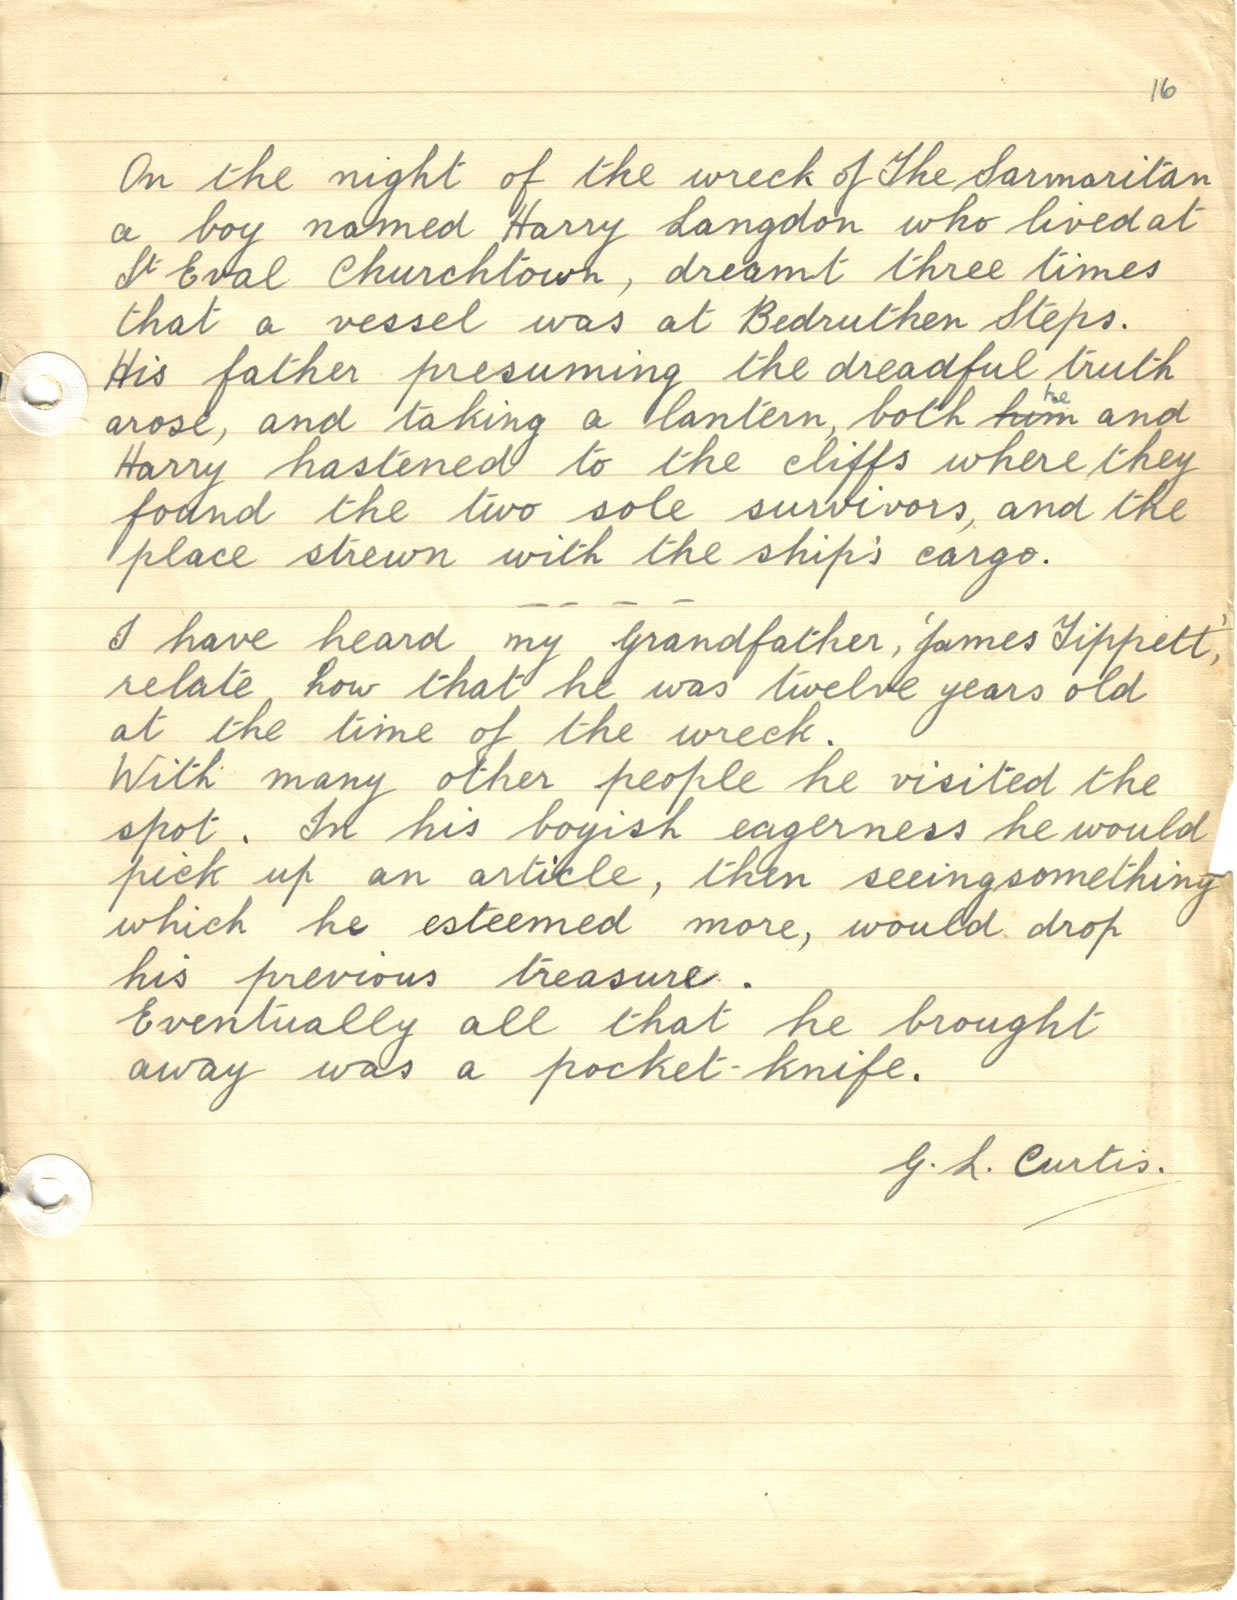 16
On the night of the wreck of The Sarmaritan
a boy named Harry Langdon who lived at
St Eval Churchtown, dreamt three times
that a vessel was at Bedruthen Steps.
His father presuming the dreadful truth
arose, and taking a lantern, both him he and
Harry hastened to the cliffs where they
found the two sole survivors, and the
place strewn with the ship's cargo.
— — — —
I have heard my Grandfather, 'James Tippett',
relate how that he was twelve years old
at the time of the wreck.
With many other people he visited the
spot. In his boyish eagerness he would
pick up an article, then seeing something
which he esteemed more, would drop
his previous treasure.
Eventually all that he brought
away was a pocket-knife.
G. L. Curtis.